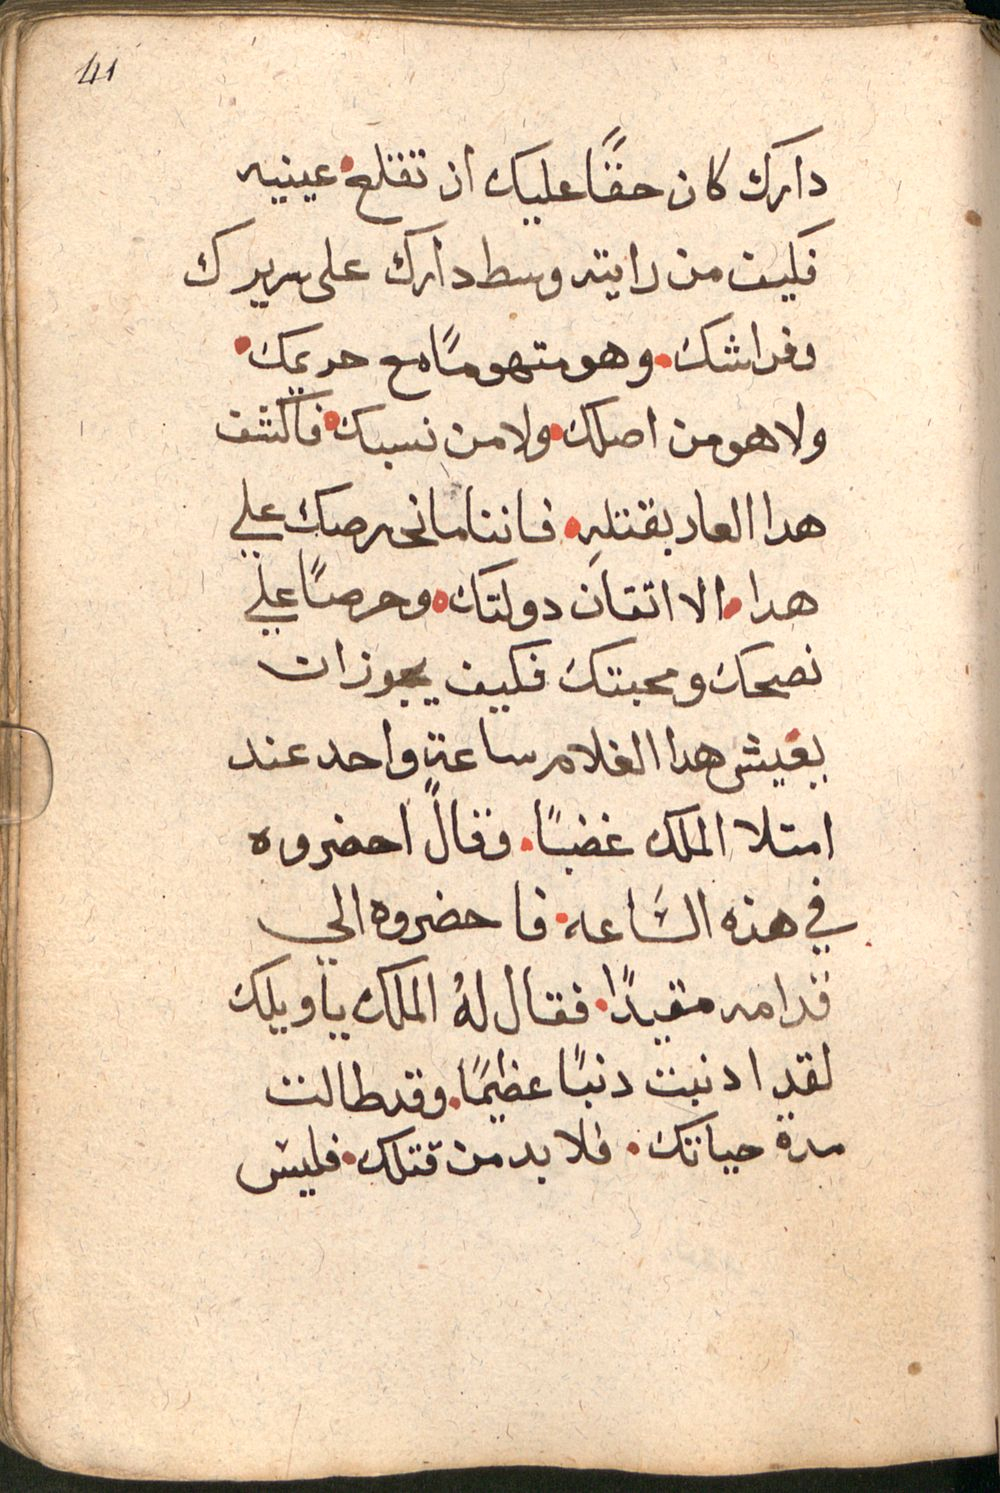 41
دارك كان حقًا عليك ان تقلع عينيه
فكيف من رايته وسط دارك على سريرك
وفراشك • وهو متهومًا مع حريمك •
ولا هو من اصلك • ولا من نسبك • فاكشف
هدا العار بقتله • فاننا ما نحرصك علي
هدا • الا اتقان دولتك • وحرصًا علي
نصحك ومحبتك فكيف يجوز ان
يعيش هدا الغلام ساعة واحد عند
امتلا الملك غضبًا • وقال احضروه
في هذه الساعه • فاحضروه الي
قدامه مقيدًا • فقال لهُ الملك يا ويلك
لقد ادنبت دنبًا عظيمًا • وقد طالت
مدة حياتك • فلا بد من قتلك • فليس